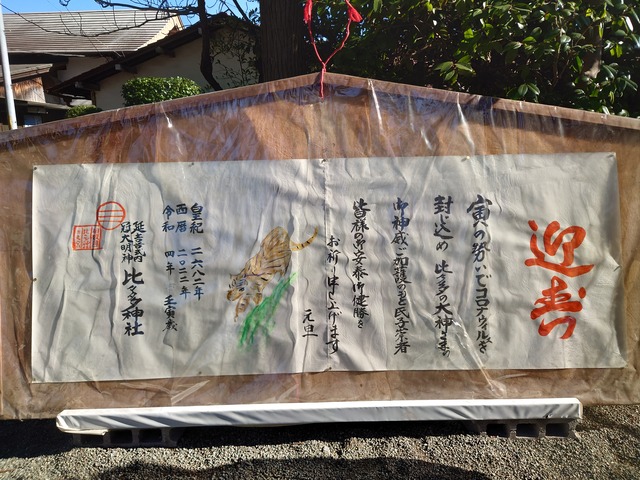 迎寿
寅の勢いでコロナウィルスを
封じ込め 比々多の大神さまの
御神威ご加護のもと氏子崇者
皆様の御安泰御健勝を
お祈り申し上げます
元旦
皇紀 二六八二年
西暦 二〇二二年
令和 四年 壬寅歳
延喜式内
冠大明神
比々多神社